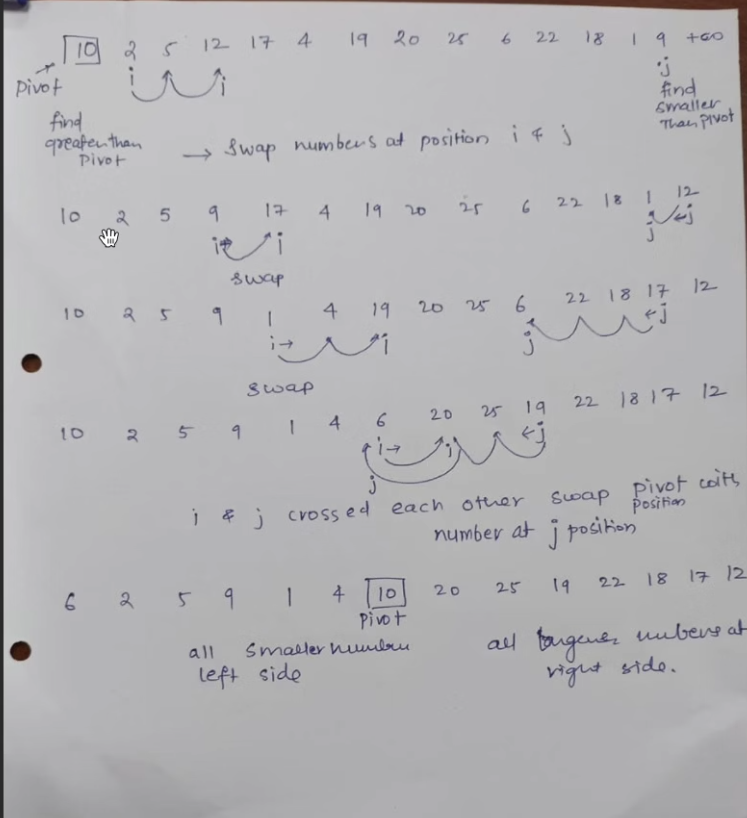 10 2 5 12 17 4 19 20 25 6 22 18 1 9 +∞
Pivot i i j
find greater than Pivot
find smaller Than Pivot
→ Swap numbers at position i & j
10 2 5 9 17 4 19 20 25 6 22 18 1 12
i i j j
swap
10 2 5 9 1 4 19 20 25 6 22 18 17 12
i i j j
swap
10 2 5 9 1 4 6 20 25 19 22 18 17 12
i i j
j
i & j crossed each other swap pivot with
position
number at j position
6 2 5 9 1 4 10 20 25 19 22 18 17 12
Pivot
all smaller
left side
all at
right side.